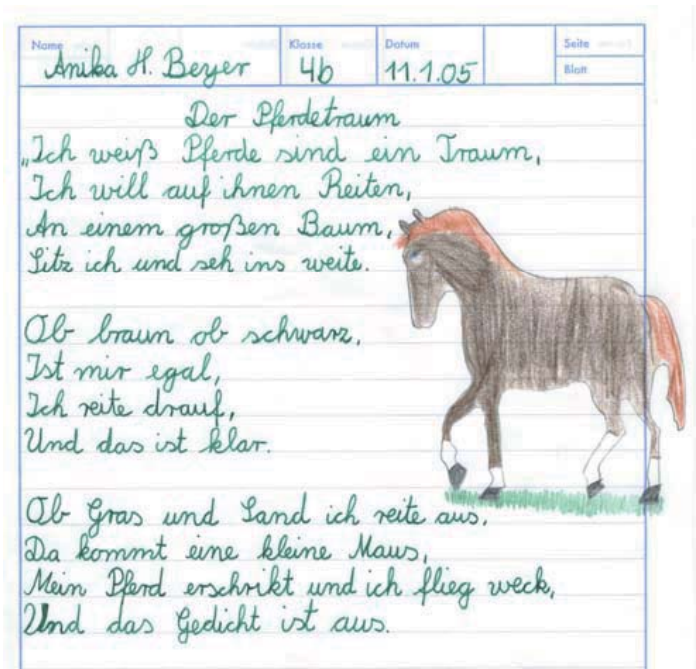 Name Klasse Datum Seite
Anika H. Beyer 4b 11.1.05 Blatt
Der Pferdetraum
„Ich weiß Pferde sind ein Traum,
Ich will auf ihnen Reiten,
An einem großen Baum,
Sitz ich und seh ins weite.
Ob braun ob schwarz,
Ist mir egal,
Ich reite drauf,
Und das ist klar.
Ob Gras und Sand ich reite aus,
Da kommt eine kleine Maus,
Mein Pferd erschrikt und ich flieg weck,
Und das Gedicht ist aus.